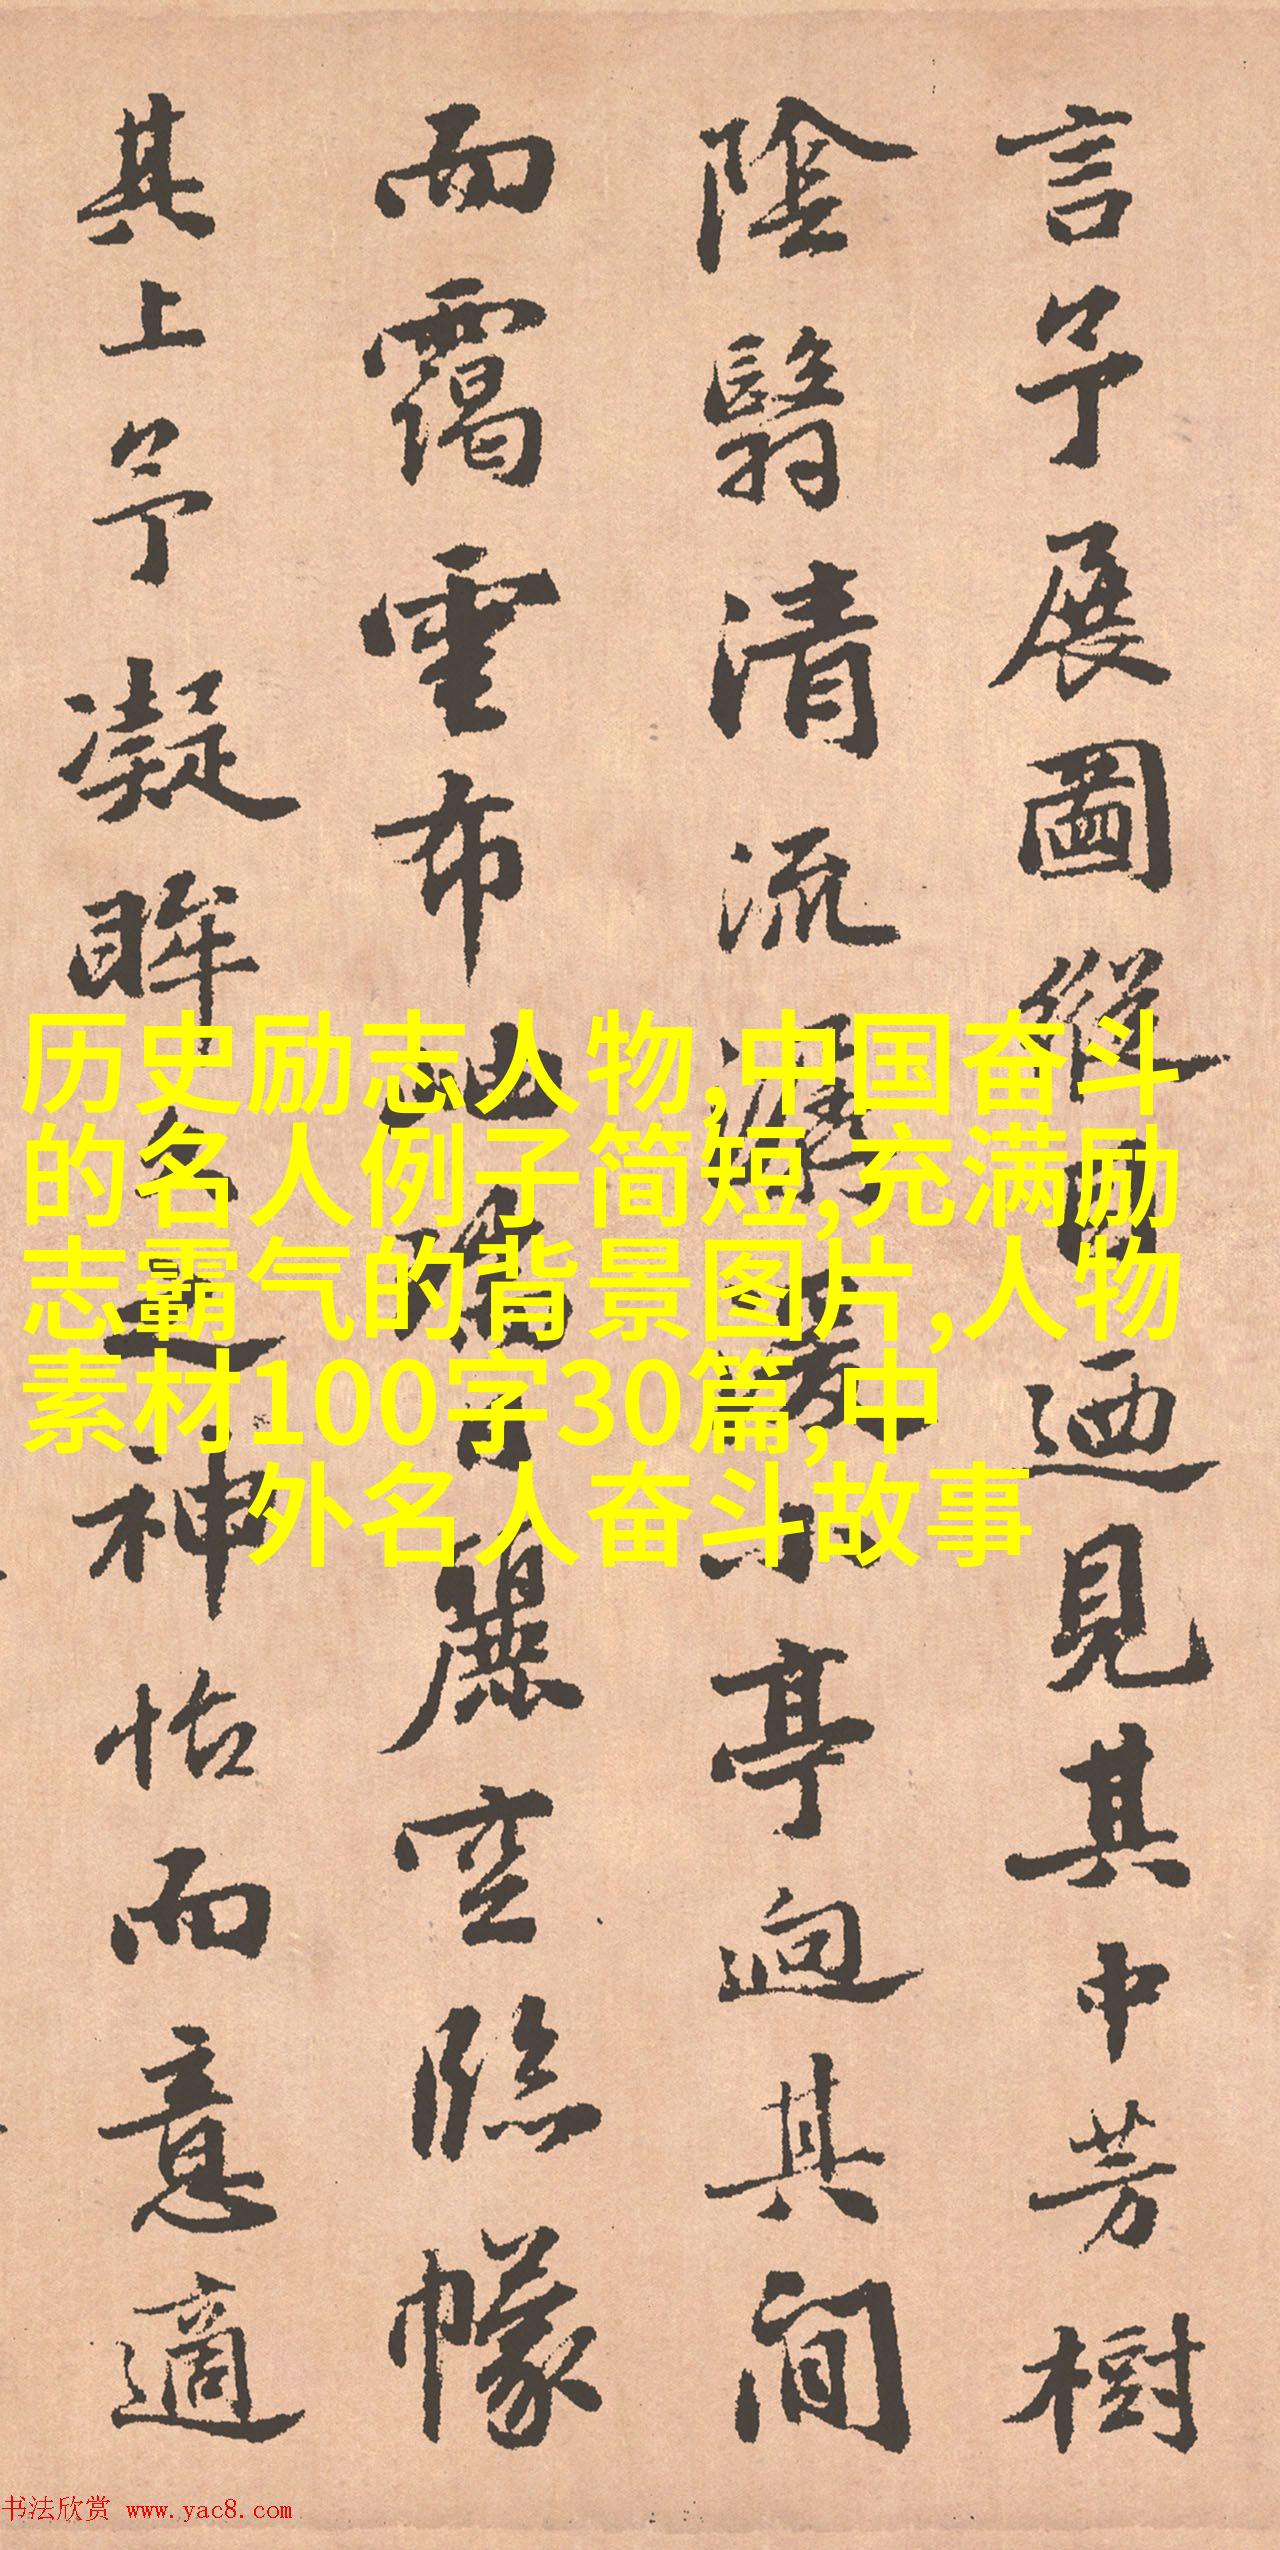 言予展圖縱目迺見其中芳樹
陰翳清流潺湲小亭迥其間
而靄雲布地飛麗空臨幪
其上予凝眸久之神怡而意適
历史励志人物,中国奋斗
的名人例子简短,充满励
志霸气的背景图片,人物
素材100字30篇,中
外名人奋斗故事
书法欣赏 www.yac8.com